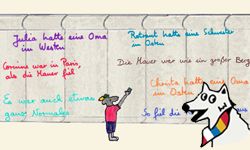 Julia hatte eine Oma
im Westen
Rotraut hatte eine Schwester
im Osten
Corinna war in Paris,
als die Mauer fiel
Die Mauer war wie ein großer Berg
Christa hatte eine Oma
im Osten
Es war auch etwas
ganz Normales
So fiel die